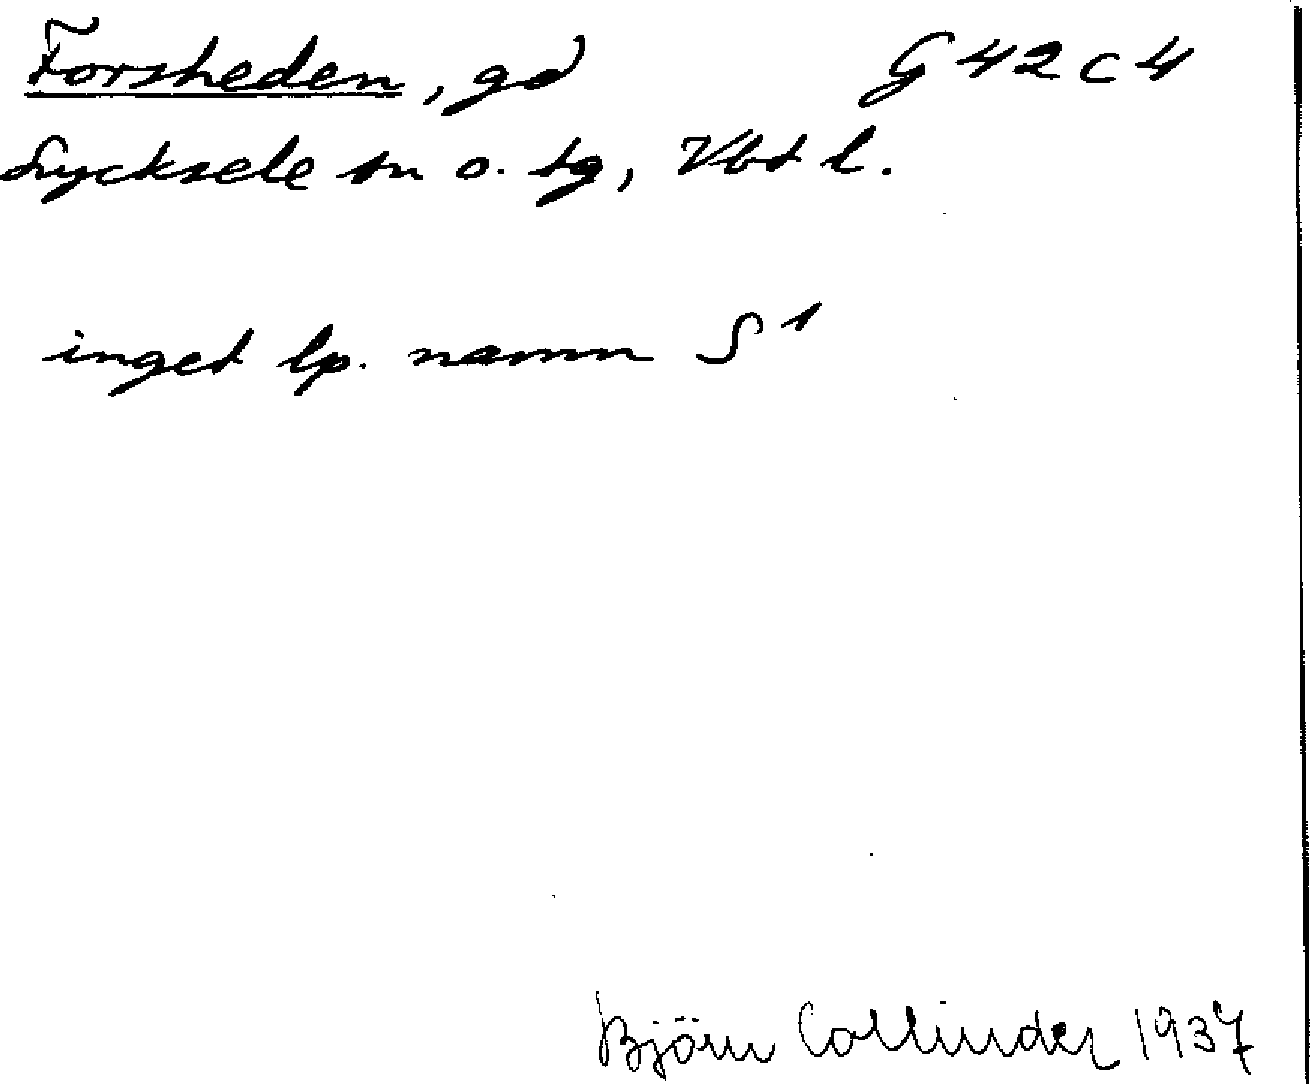 Forsheden, gd G 42 c 4
Lycksele sn o. tg, Vbt l.
inget lp. namn S 1
Björn Collinder 1937